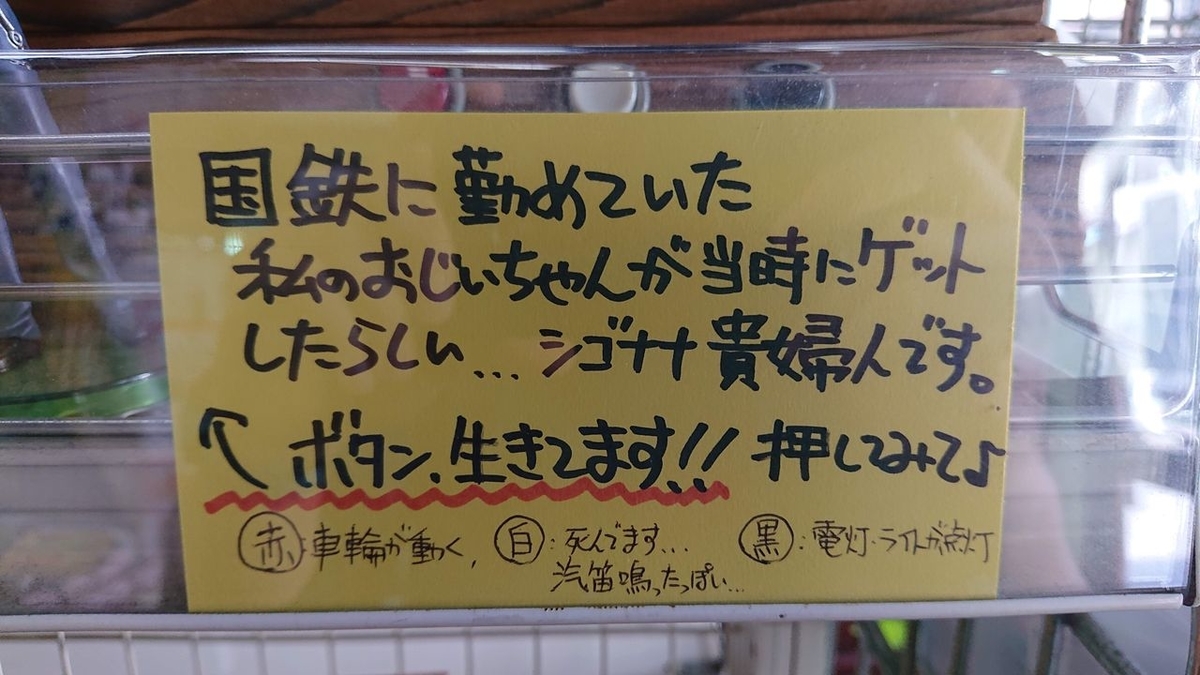 国鉄に勤めていた
私のおじいちゃんが当時にゲット
したらしい... シゴナナ貴婦人です。
↖ ボタン、生きてます!! 押してみて♪
赤:車輪が動く、 白:死んでます... 黒:電灯・ライトが点灯
汽笛鳴ったっぽい...